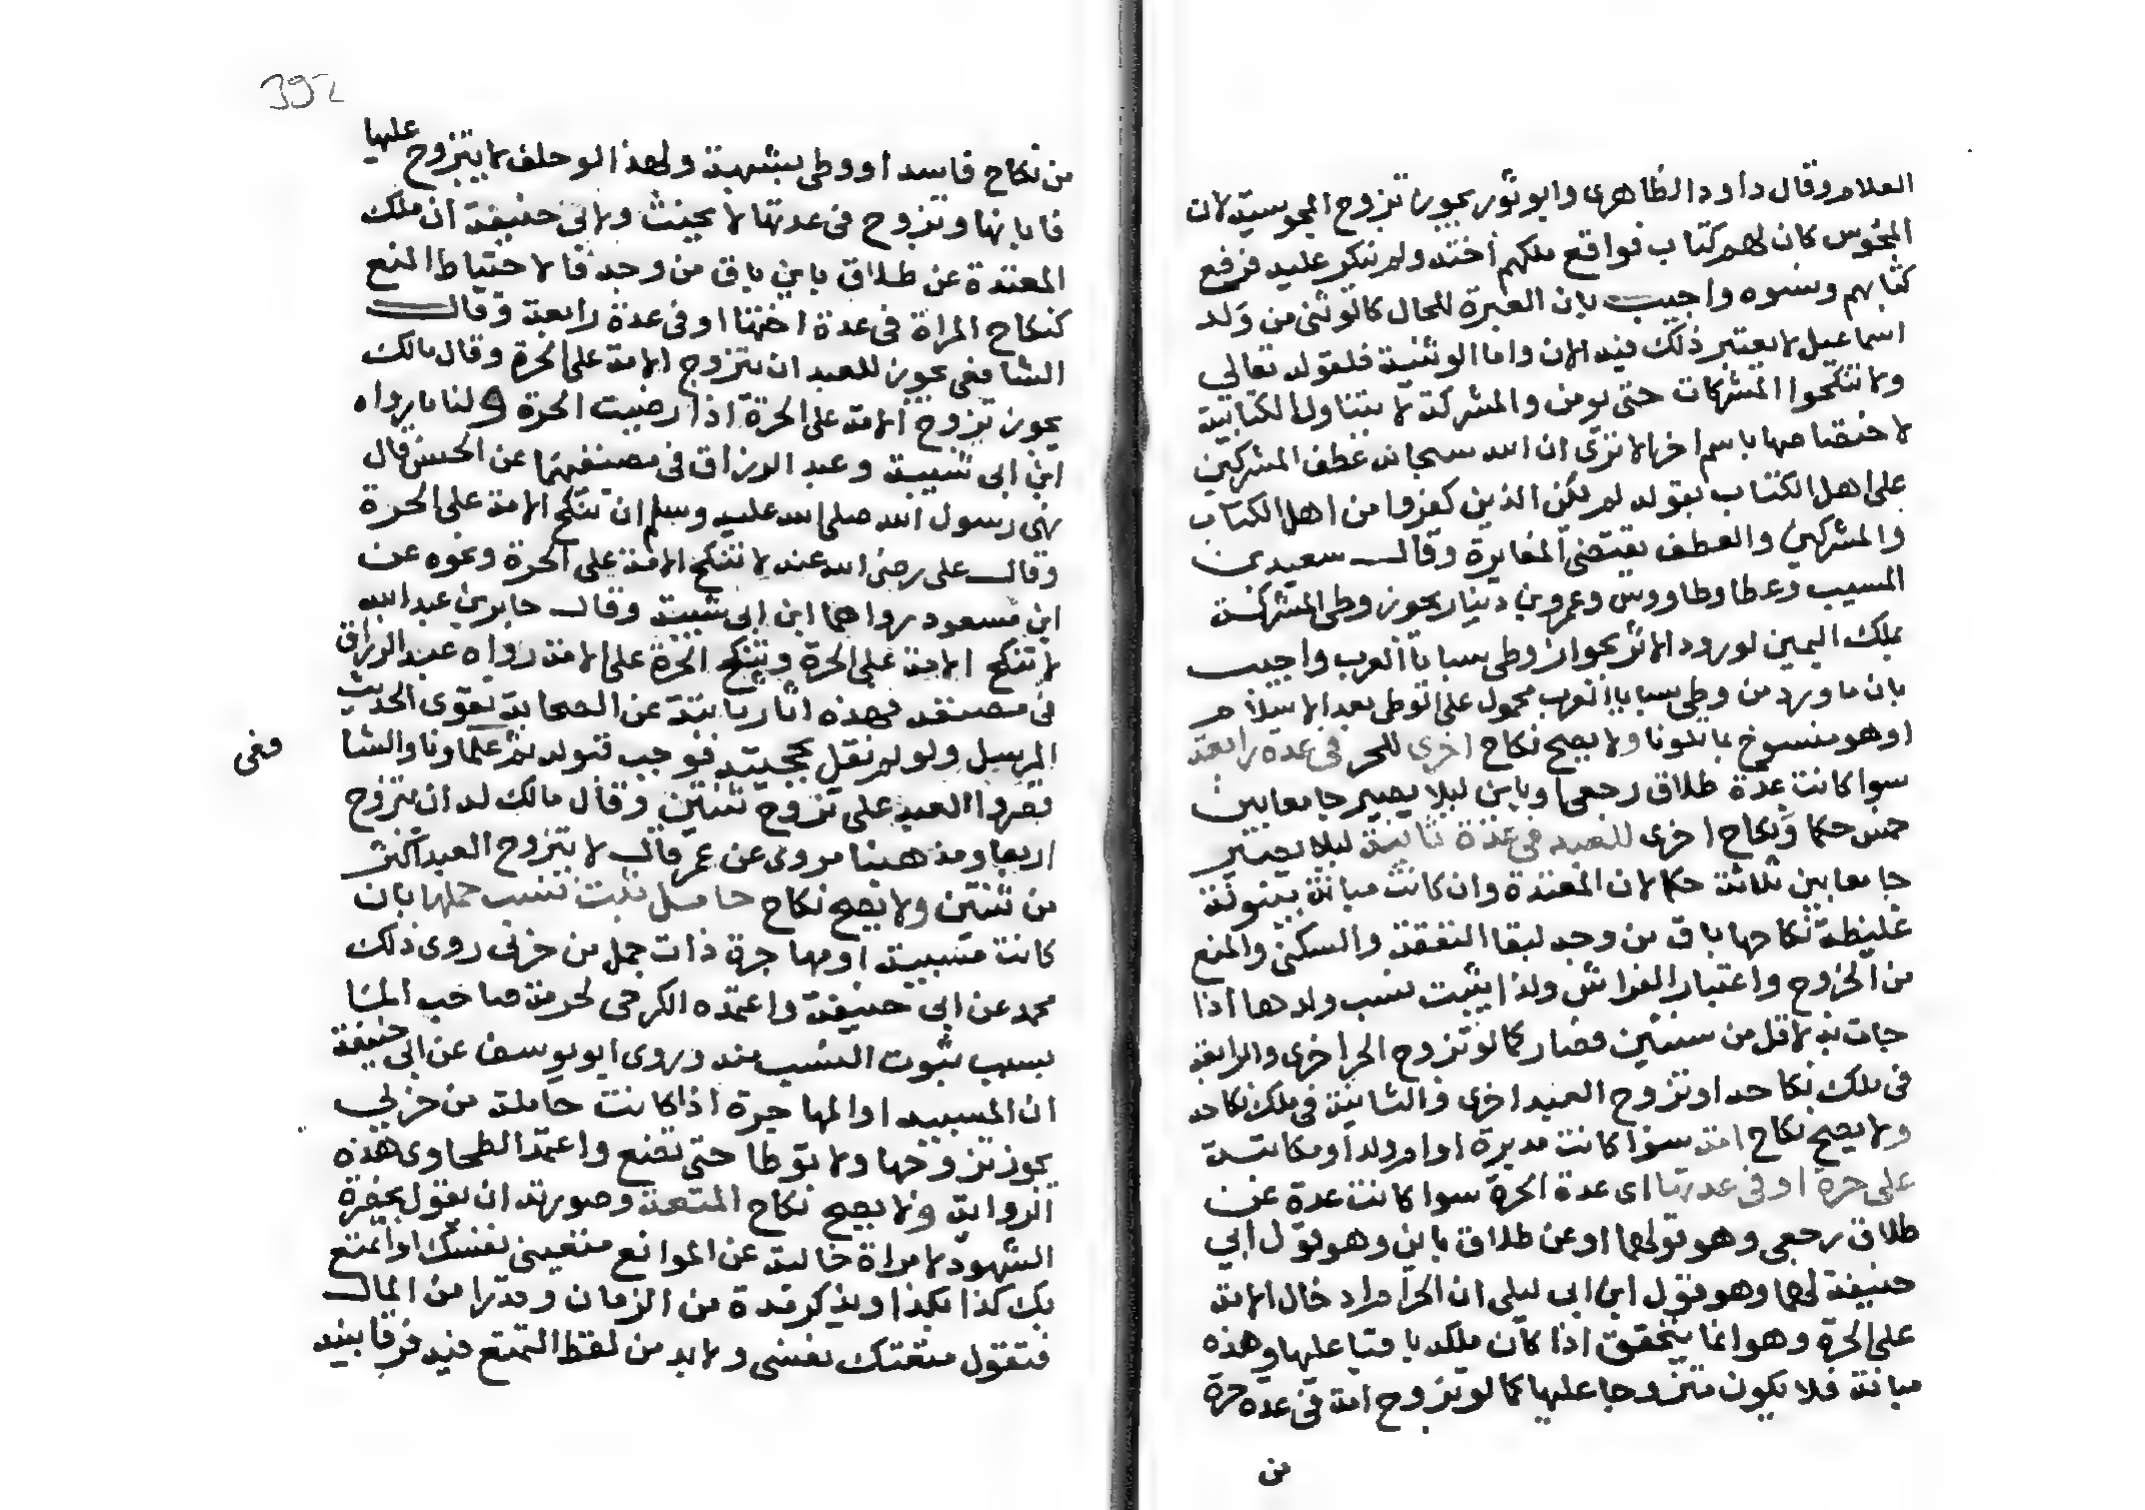 العلام وقال داود الظاهري وابو ثور يجوز تزوج المجوسية لان
المجوس كان لهم كتاب فواقع ملكهم اخته ولم ينكر عليه فرفع
كتابهم ونسوه واجيب بان العبرة للحال كالوثني من ولد
اسماعيل لا يعتبر ذلك فيه الان واما الوثنية فلقوله تعالى
ولا تنكحوا المشركات حتى يومن والمشركة لا يتناول الكتابية
لاختصاصها باسم اخر الا ترى ان الله سبحانه عطف المشركين
على اهل الكتاب بقوله لم يكن الذين كفروا من اهل الكتاب
والمشركين والعطف يقتضي المغايرة وقال سعيد بن
المسيب وعطا وطاووس وعمرو بن دينار يجوز وطي المشركة
بملك اليمين لورود الاثر بجواز وطي سبايا العرب واجيب
بان ما ورد من وطي سبايا العرب محمول على الوطي بعد الاسلام
او هو منسوخ بما تلونا ولا يصح نكاح اخرى للحر في عدة رابعة
سوا كانت عدة طلاق رجعي او باين ليلا يصير جامعا بين
خمس حكما ونكاح اخرى للعبد في عدة ثانية ليلا يصير
جامعا بين ثلاثة حكما لان المعتدة وان كانت مبانة بينونة
غليظة نكاحها باق من وجه لبقا النفقة والسكنى والمنع
من الخروج واعتبار الفراش ولذا يثبت نسب ولدها اذا
جات به لاقل من سنتين فصار كما لو تزوج الحر اخرى والرابعة
في ملك نكاحه او تزوج العبد اخرى والثانية في ملك نكاحه
ولا يصح نكاح امة سوا كانت مدبرة او ام ولد او مكاتبة
على حرة او في عدتها اي عدة الحرة سوا كانت عدة عن
طلاق رجعي وهو قولهما او عن طلاق باين وهو قول ابي
حنيفة لهما وهو قول ابن ابي ليلى ان الحرام ادخال الامة
على الحرة وهو انما يتحقق اذا كان ملكه باقيا عليها وهذه
مبانة فلا يكون متزوجا عليها كما لو تزوج امة في عدة حرة
من
392
من نكاح فاسد او وطي بشبهة ولهذا لو حلف لا يتزوج عليها
فابانها وتزوج في عدتها لا يحنث ولابي حنيفة ان ملك
المعتدة عن طلاق باين باق من وجه فالاحتياط المنع
كنكاح المراة في عدة اختها او في عدة رابعة وقال
الشافعي يجوز للعبد ان يتزوج الامة على الحرة وقال مالك
يجوز تزوج الامة على الحرة اذا رضيت الحرة ولنا ما رواه
ابن ابي شيبة وعبد الرزاق في مصنفيهما عن الحسن قال
نهى رسول الله صلى الله عليه وسلم ان تنكح الامة على الحرة
وقال علي رضي الله عنه لا تنكح الامة على الحرة ونحوه عن
ابن مسعود رواهما ابن ابي شيبة وقال جابر بن عبد الله
لا تنكح الامة على الحرة وتنكح الحرة على الامة رواه عبد الرزاق
في مصنفه فهذه اثار ثابتة عن الصحابة تقوي الحديث
المرسل ولو لم نقل بحجيته فوجب قبوله ثم علماونا والشا
فعي
قصروا العبد على تزوج ثنتين وقال مالك له ان يتزوج
اربعا ومذهبنا مروي عن عمر قال لا يتزوج العبد اكثر
من ثنتين ولا يصح نكاح حامل ثبت نسب حملها بان
كانت مسبية او مهاجرة ذات حمل من حربي روى ذلك
محمد عن ابي حنيفة واعتمده الكرخي لحرمة صاحب الما
بسبب ثبوت النسب منه وروى ابو يوسف عن ابي حنيفة
ان المسبية او المهاجرة اذا كانت حاملة من حربي
يجوز تزوجها ولا توطا حتى تضع واعتمد الطحاوي هذه
الرواية ولا يصح نكاح المتعة وصورته ان يقول بحضرة
الشهود لامراة خالية عن الموانع متعيني نفسك او اتمتع
بك كذا بكذا ويذكر مدة من الزمان وقدرا من المال
فتقول متعتك نفسي ولا بد من لفظ التمتع فيه فرقا بينه